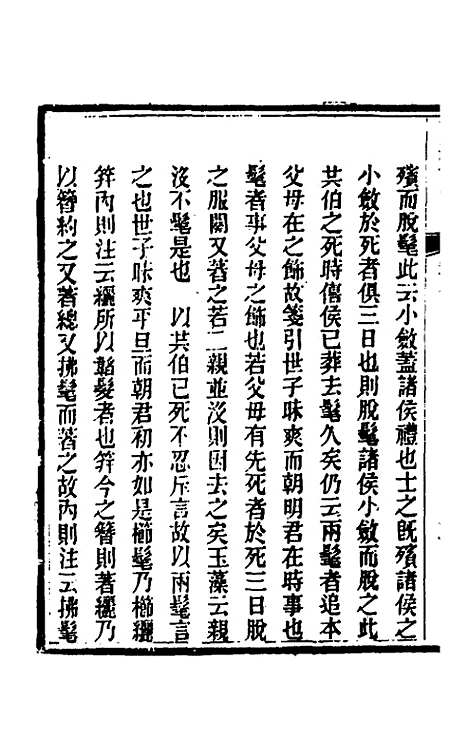 殯而脫髦此云小斂蓋諸侯禮也士之既殯諸侯之
小斂於死者俱三日也則脫髦諸侯小斂而脫之此
共伯之死時僖侯已葬去髦久矣仍云兩髦者追本
父母在之飾故箋引世子昧爽而朝明君在時事也
髦者事父母之飾也若父母有先死者於死三日脫
之服闋又著之若二親並沒則因去之矣玉藻云親
沒不髦是也　以共伯已死不忍斥言故以兩髦言
之也世子昧爽平旦而朝君初亦如是櫛髦乃櫛纚
笄內則注云纚所以韜髮者也笄今之簪則著纚乃
以簪約之又著總又拂髦而著之故內則注云拂髦